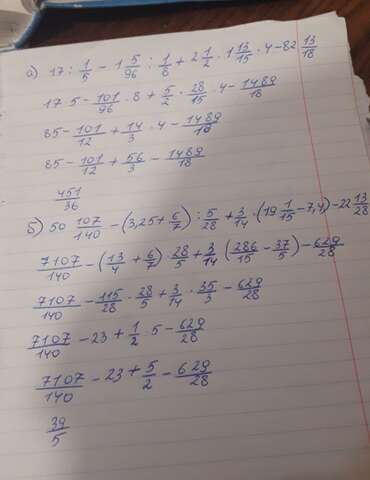 а) 17 : 1/5 - 1 5/96 : 1/8 + 2 1/2 · 1 13/15 · 4 - 82 13/18
17 5 - 101/96 · 8 + 5/2 · 28/15 · 4 - 1489/18
85 - 101/12 + 14/3 · 4 - 1489/18
85 - 101/12 + 56/3 - 1489/18
451/36
б) 50 107/140 - (3,25 + 6/7) : 5/28 + 3/14 · (19 1/15 - 7,4) - 22 13/28
7107/140 - (13/4 + 6/7) · 28/5 + 3/14 (286/15 - 37/5) - 629/28
7107/140 - 115/28 · 28/5 + 3/14 · 35/3 - 629/28
7107/140 - 23 + 1/2 · 5 - 629/28
7107/140 - 23 + 5/2 - 629/28
39/5